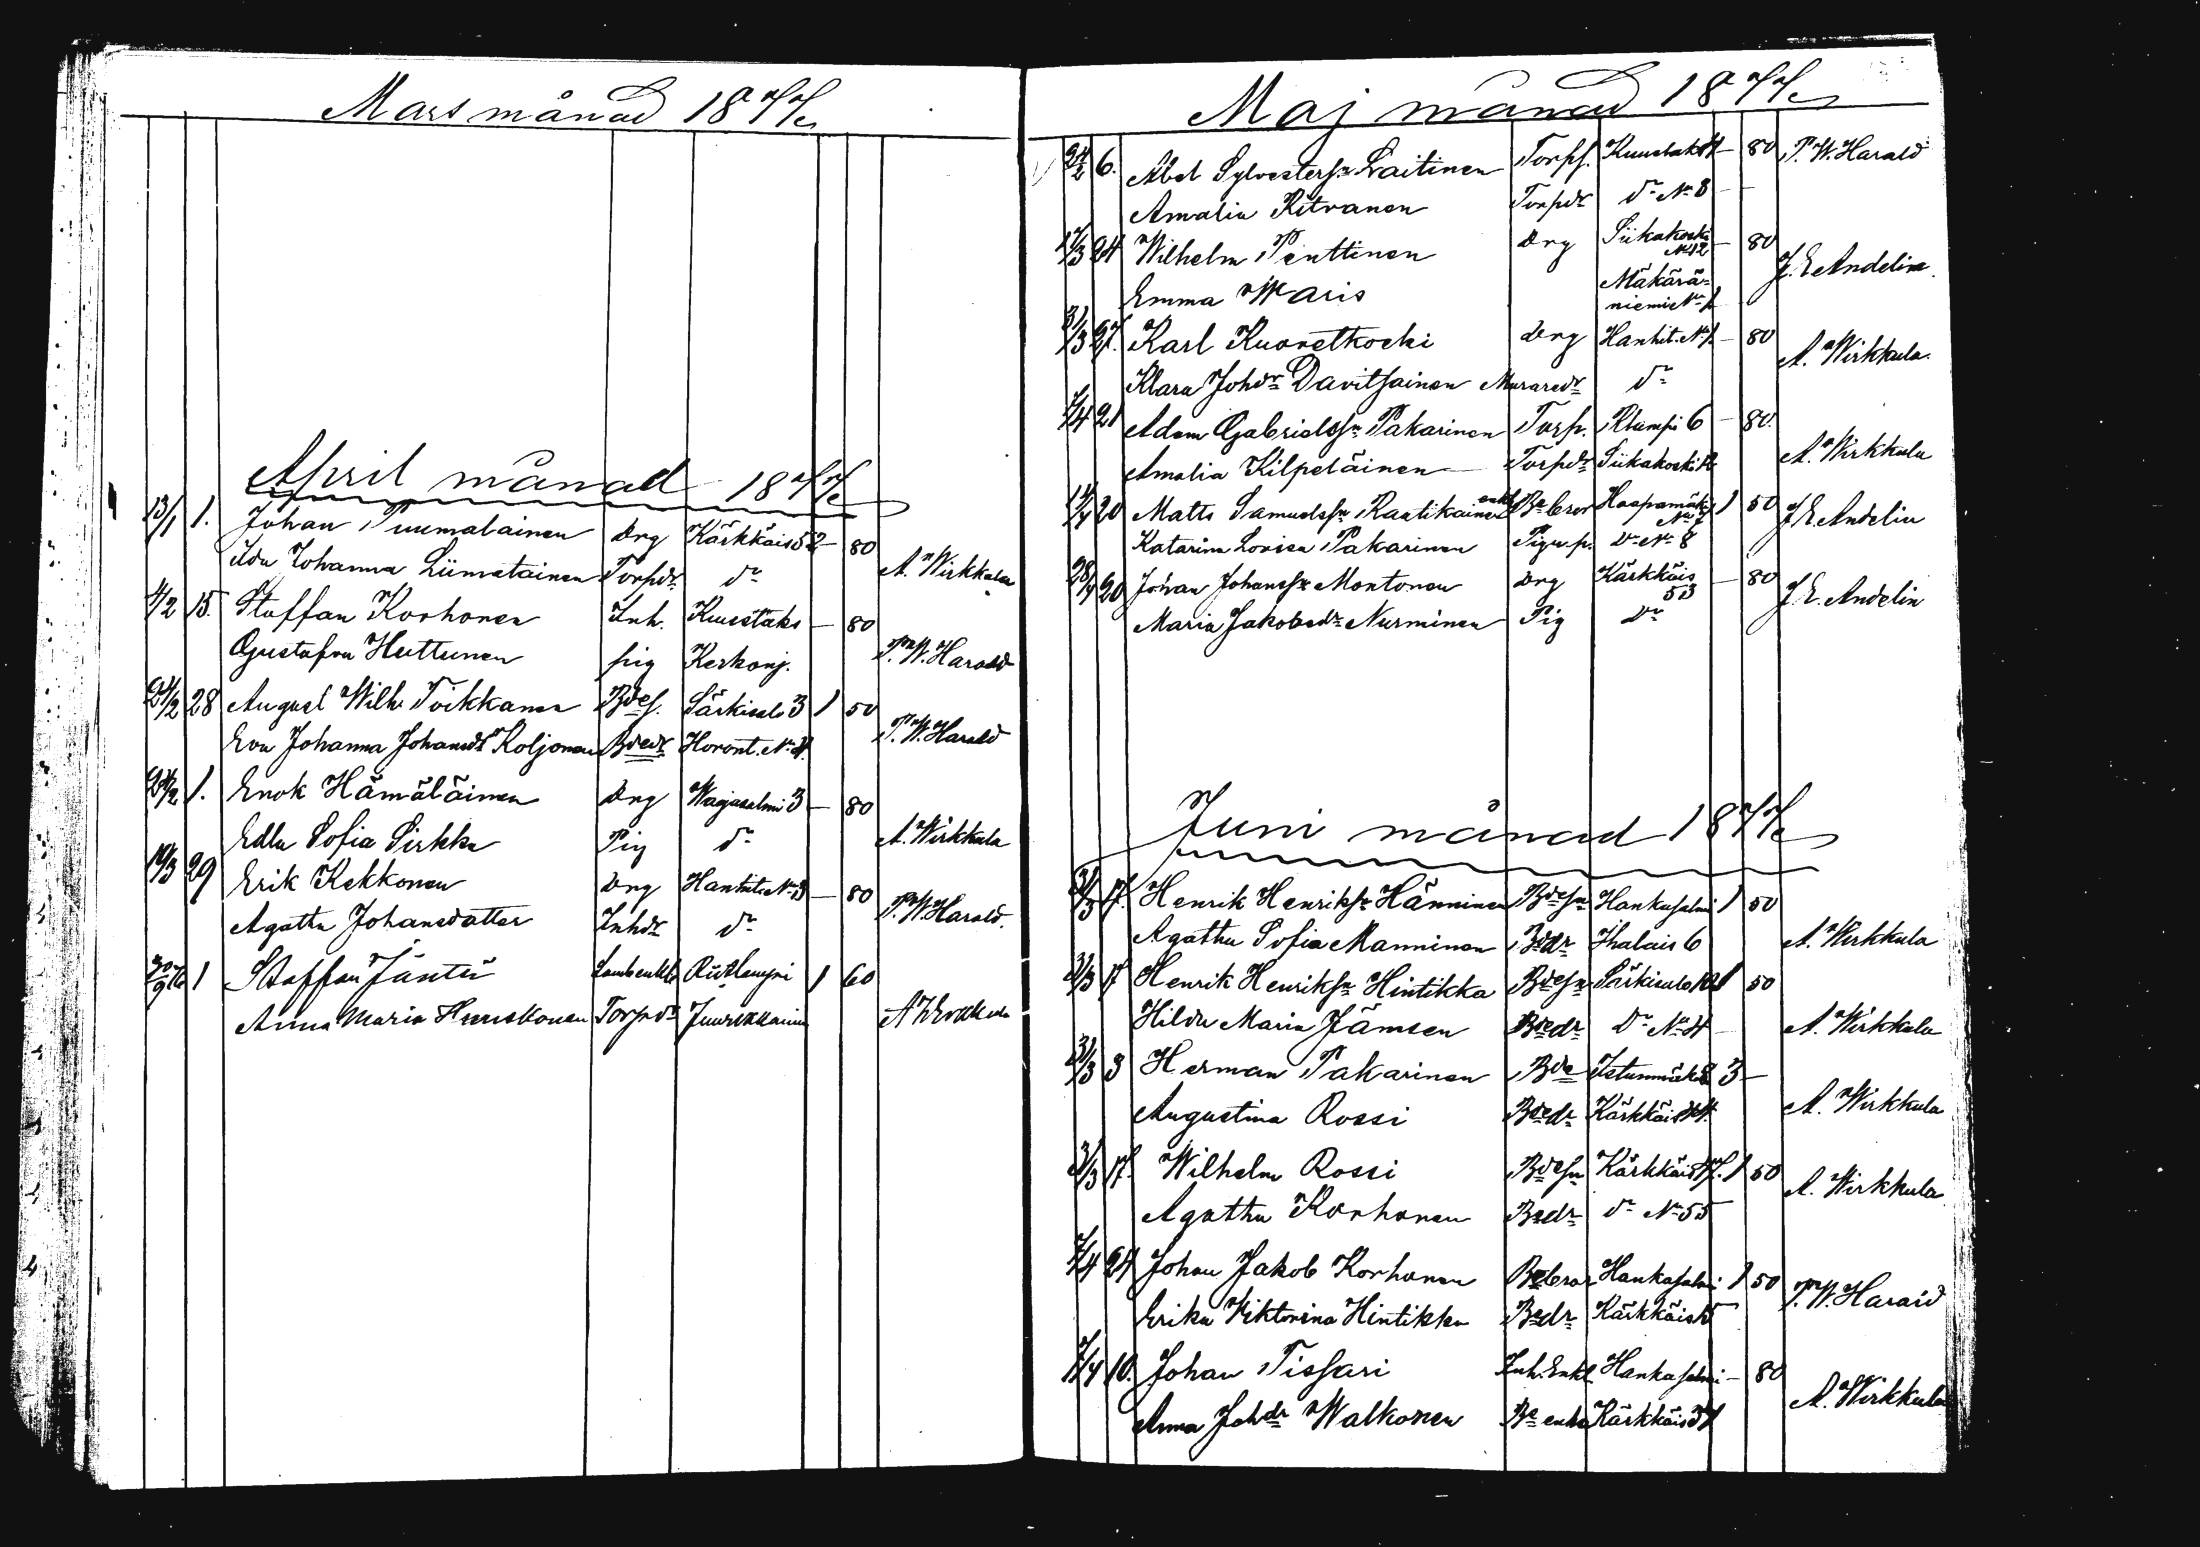 Mars månad 1877
April månad 1877
13/1 1. Johan Puumalainen Drg Kärkkäis 52 - 80
Ida Johanna Liimatainen Torpdr do A. Wirkkala
4/2 15. Staffan Korhonen Inh. Kuustaks - 80
Gustafva Huttunen pig Kerkonj. P. W. Harald
24/2 28 August Wilh. Toikkanen Bdes. Särkisalo 3 1 50
Eva Johanna Johansdr Koljonen Bdedr Horont. No 4. P. W. Harald
24/2 1. Enok Hämäläinen Drg Wajasalmi 3 - 80
Edla Sofia Sirkka Pig do A. Wirkkala
29 Erik Kekkonen Drg Hanhit. No 3 - 80
Agatha Johansdotter Inhdr do P. W. Harald.
1 Staffan Jäntti 1 60
Anna Maria Torpdr
Maj månad 1877
24/2 6. Abel Sylvestersn Laitinen Torps. Kuustaks 4 - 80 P. W. Harald
Amalia Ritvanen Torpdr do No 8 -
17/3 24 Wilhelm Penttinen Drg Siikakoski No 12 - 80
Emma Waris Mäkärä= niemi No 1 J. E. Andelin.
31/3 27. Karl Kuoretkoski Drg Hanhit. No 1. - 80
Klara Johdr Davitsainen Muraredr do A. Wirkkala.
7/4 21 Adam Gabrielssn Pakarinen Torp. 6 - 80.
Amalia Kilpeläinen Torpdr Siikakoski A. Wirkkala
14/4 20 Matts Samuelssn Rautikainen enkl. Bdebror Haapamäki No 7 1 50 J E Andelin
Katarina Lovisa Pakarinen do No 8
28/4 20 Johan Johanssn Montonen Drg Kärkkäis 53 - 80
Maria Jakobsdr Nurminen Pig do J. E. Andelin
Juni månad 1877
31/3 17. Henrik Henrikssn Hänninen Bdesn Hankasalmi 1 50
Agatha Sofia Manninen Bdedr Ihalais 6 A. Wirkkala
31/3 17 Henrik Henrikssn Hintikka Bdesn Särkisalo 1 50
Hilda Maria Jämsen Bdedr do No 4 - A. Wirkkala
31/3 3 Herman Pakarinen Bde Istunmäki 8 3 -
Augustina Rossi Bdedr Kärkkäis A. Wirkkala
31/3 17. Wilhelm Rossi Bdesn Kärkkäis 1 50
Agatha Korhonen Bdedr do No 55 A. Wirkkala
7/4 24 Johan Jakob Korhonen Bdebror Hankasalmi 1 50
Erika Viktorina Hintikka Bdedr Kärkkäis P. W. Harald
7/4 10. Johan Tissari Inh. Enkl. Hankasalmi - 80
Anna Johdr Walkonen Bde enka Kärkkäis A. Wirkkala